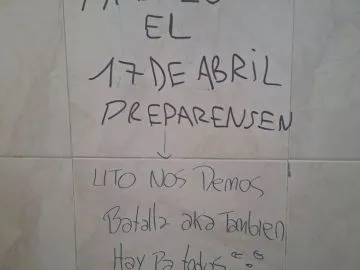 EL
17 DE ABRIL
PREPARENSEN
LITO NOS Demos
Batalla aka Tambien
Hay Pa todos